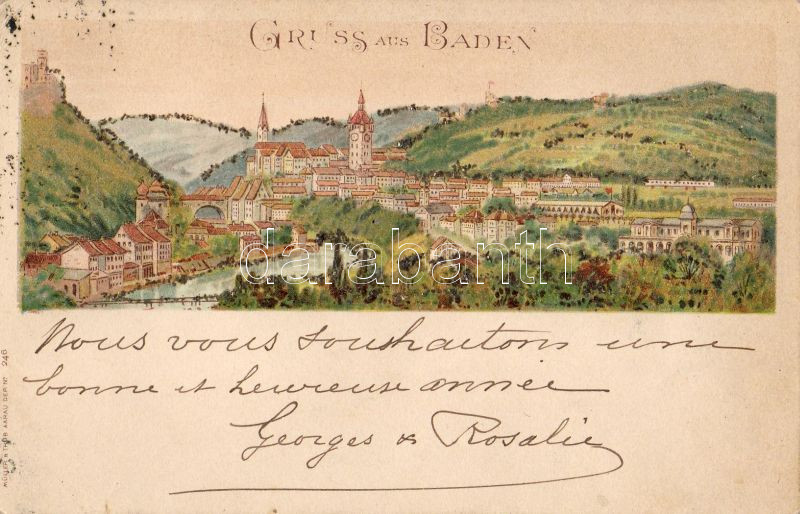 GRUSS AUS BADEN
darabanth
Nous vous souhaitons une
bonne et heureuse année
Georges & Rosalie
MÜLLER & TRÜB AARAU DEP. Nº 246